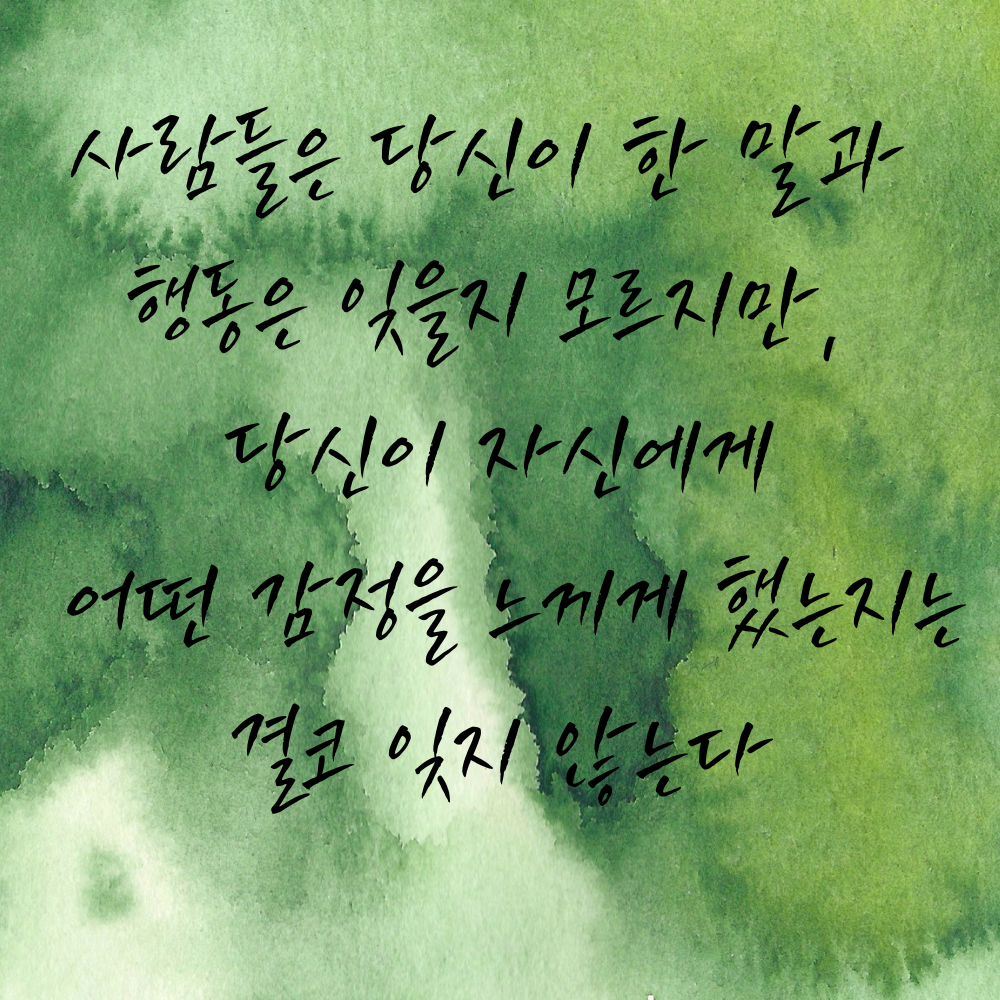 사람들은 당신이 한 말과
행동은 잊을지 모르지만,
당신이 자신에게
어떤 감정을 느끼게 했는지는
결코 잊지 않는다